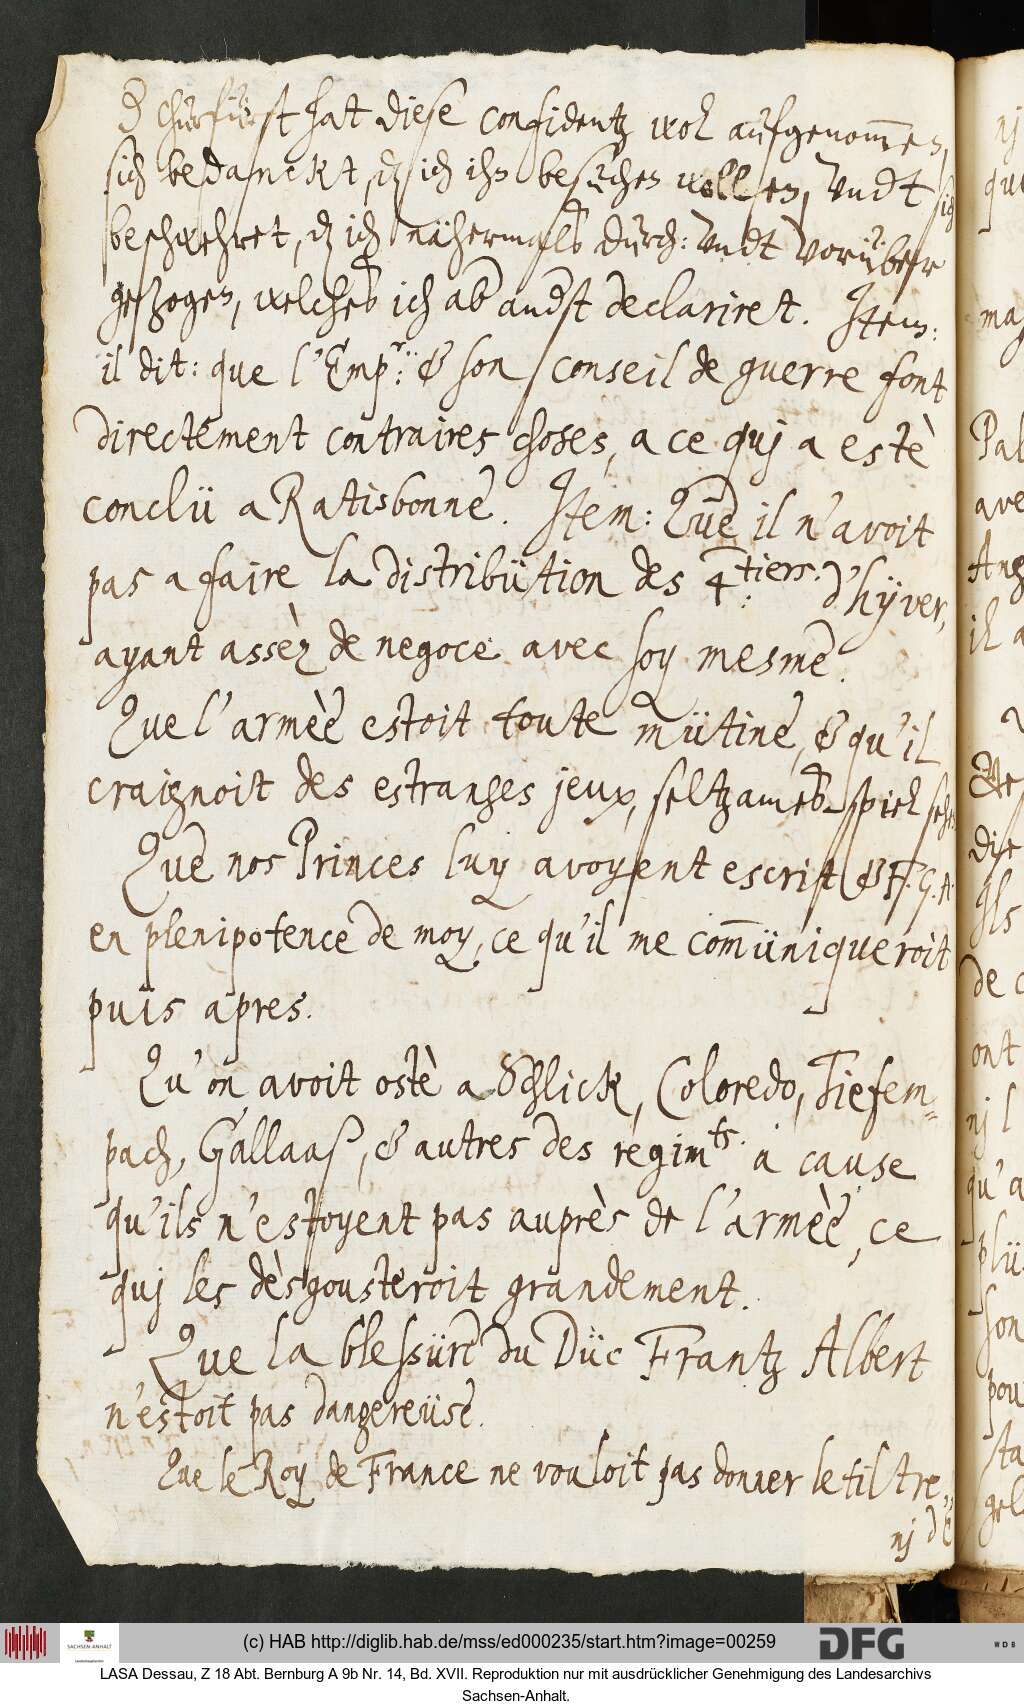 Churfürst hat diese confidentz wol aufgenom̄en,
sich bedanckt, ich ihn besuchen wollen, vndt sich
beschwehret, ich nähermalß durch: vndt vorüber
gezogen, welches ich ab declariret. Item:
il dit: que l'Emp.r: & son conseil de guerre font
directement contraires choses, a ce quj a estè
conclü a Ratisbonne. Item: Que il n'avoit
pas a faire la distribütion des 4tiers: d'hÿver,
ayant assèz de negoce avec soy mesme.
Que l'armèe estoit toute mütine, & qu'il
craignoit des estranges jeux, seltzameß spiel
Que nos Princes luy avoyent escrit & F. G. A.
en plenipotence de moy, ce qu'il me com̄üniqueroit
puis apres.
Qu'on avoit ostè a Schlick, Coloredo, Tiefem=
pach, Gallaaß, & autres des regimts. a cause
qu'ils n'estoyent pas auprès de l'armèe, ce
quj les dèsgousteroit grandement.
Que la blessüre du Düc Frantz Albert
n'estoit pas dangereüse.
Que le Roy de France ne vouloit pas donner le tiltre,
nj d'E
(c) HAB http://diglib.hab.de/mss/ed000235/start.htm?image=00259
DFG
SACHSEN-ANHALT
LASA Dessau, Z 18 Abt. Bernburg A 9b Nr. 14, Bd. XVII. Reproduktion nur mit ausdrücklicher Genehmigung des Landesarchivs
Sachsen-Anhalt.